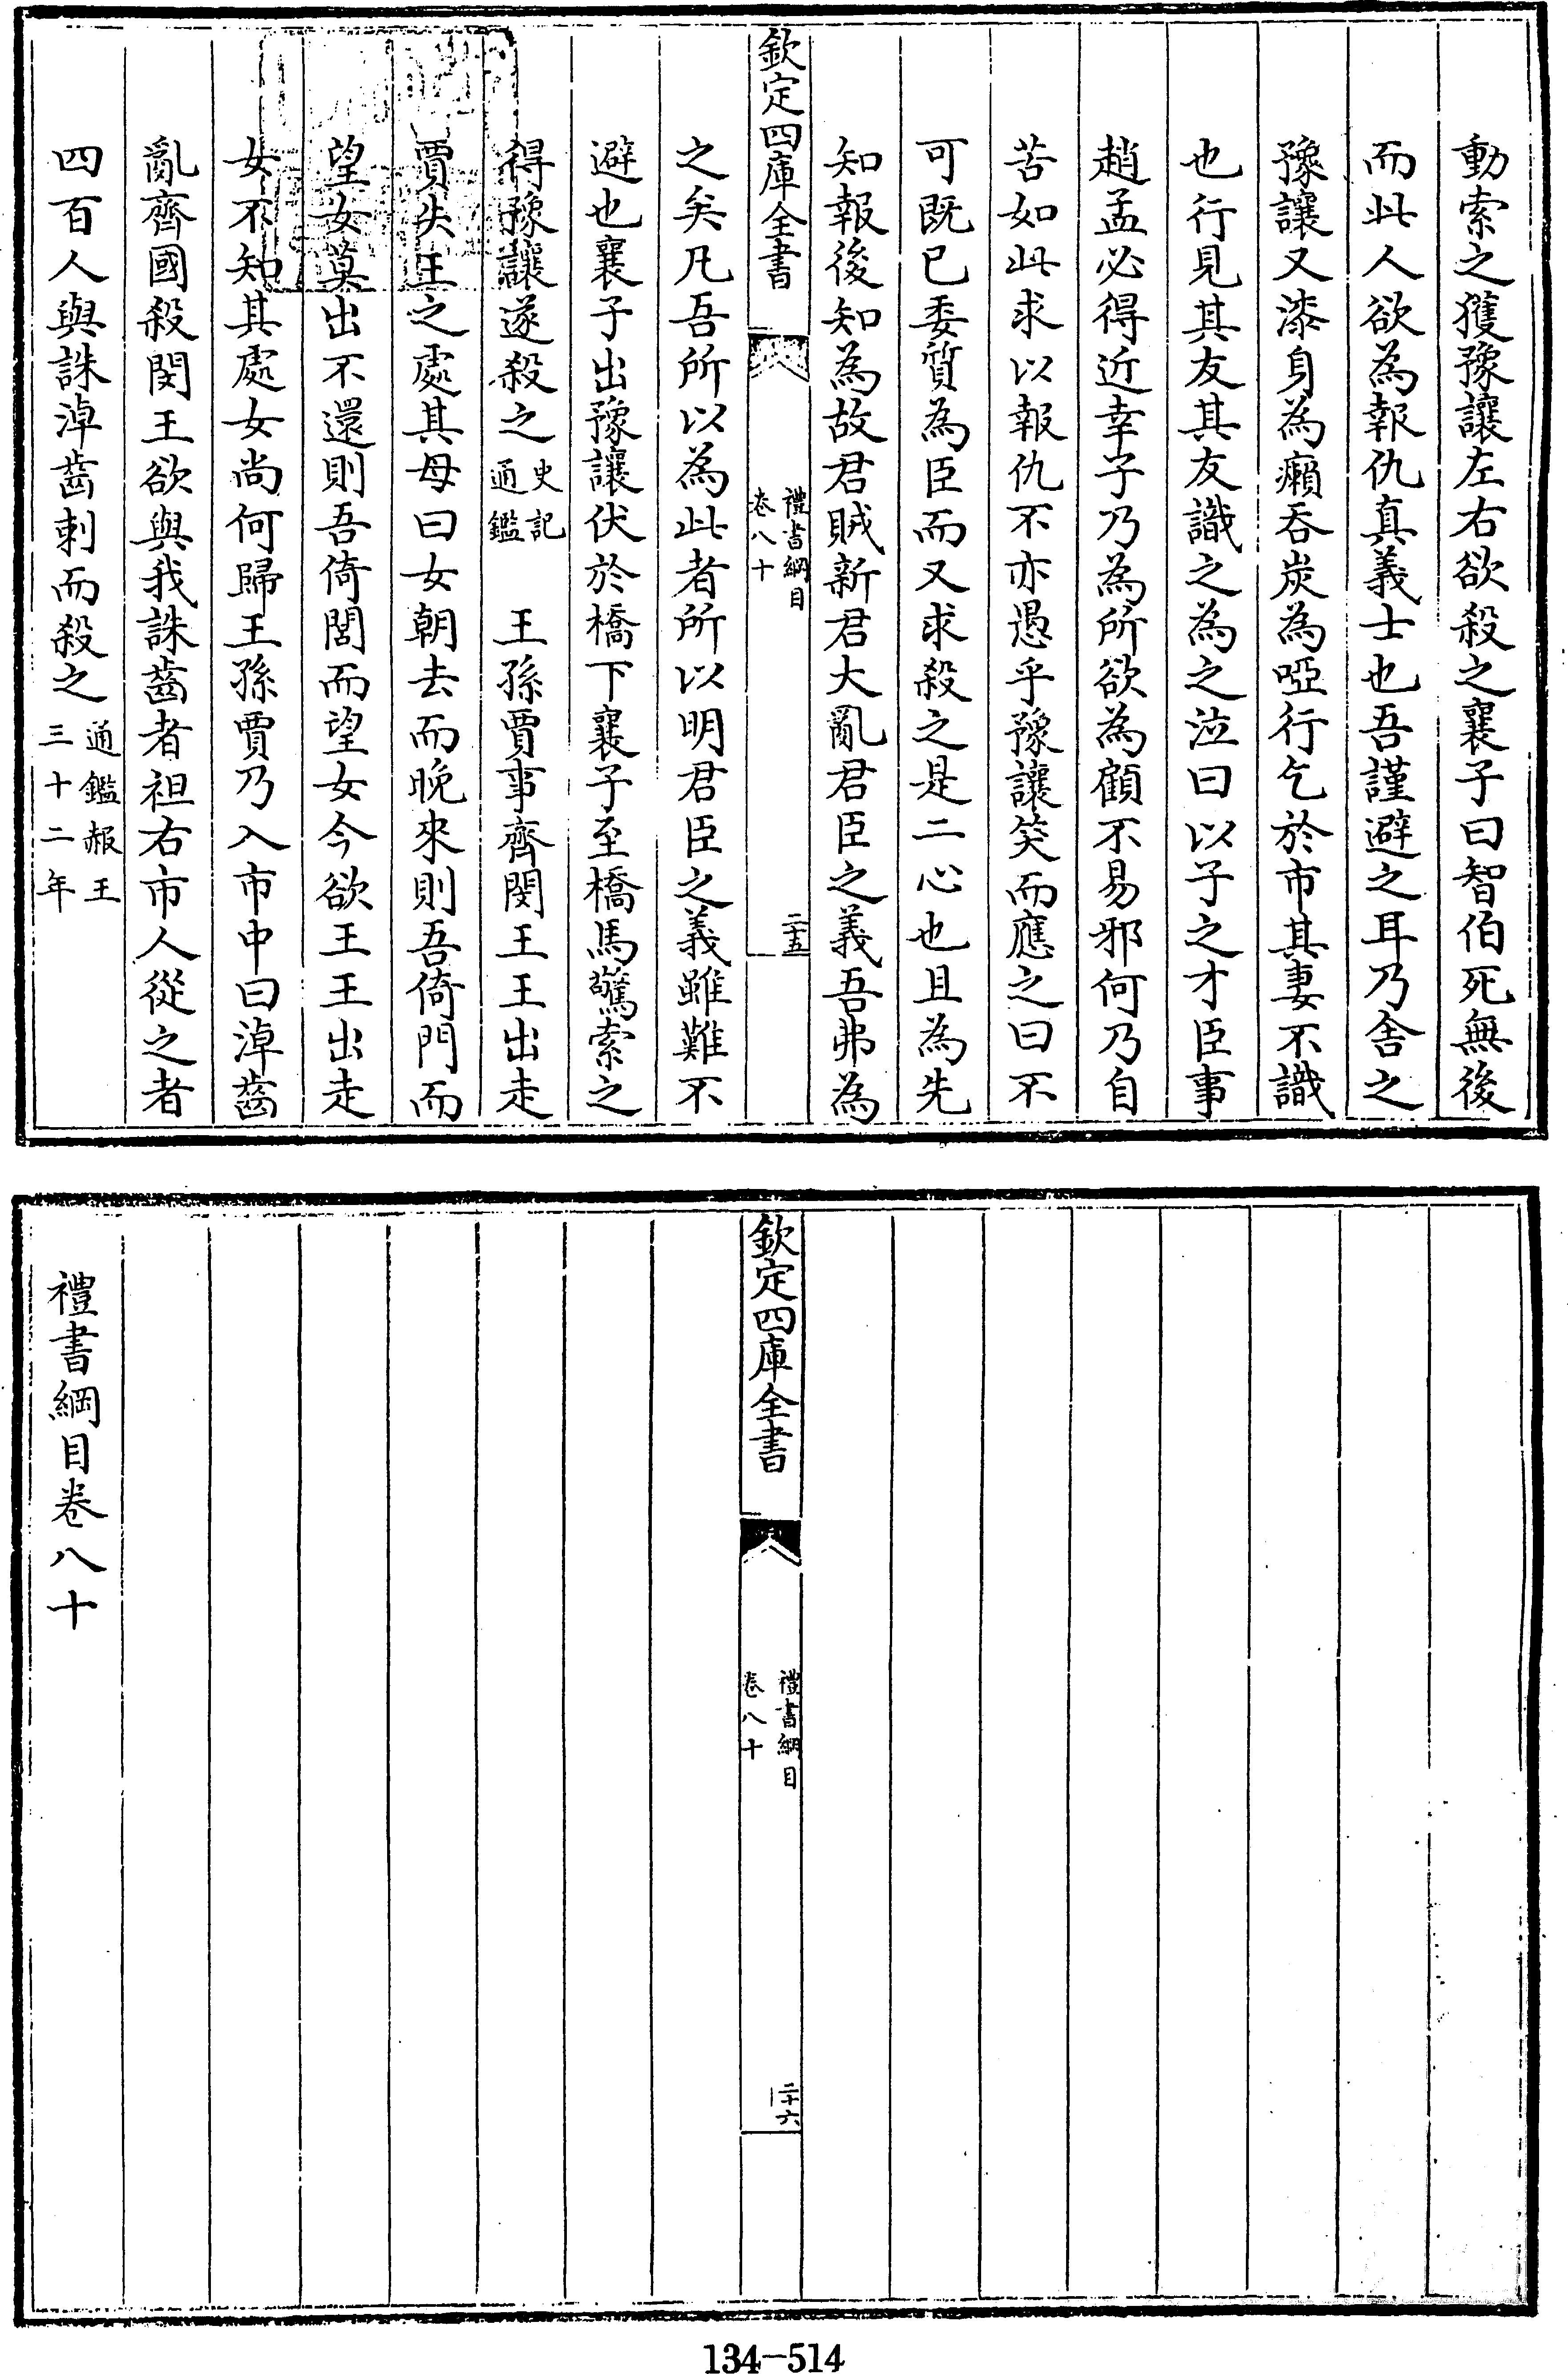 動索之獲豫讓左右欲殺之襄子曰智伯死無後
而此人欲為報仇真義士也吾謹避之耳乃舍之
豫讓又漆身為癩吞炭為啞行乞於市其妻不識
也行見其友其友識之為之泣曰以子之才臣事
趙孟必得近幸子乃為所欲為顧不易邪何乃自
苦如此求以報仇不亦愚乎豫讓笑而應之曰不
可既已委質為臣而又求殺之是二心也且為先
知報後知為故君賊新君大亂君臣之義吾弗為
欽定四庫全書
禮書綱目
卷八十
二十五
之矣凡吾所以為此者所以明君臣之義雖難不
避也襄子出豫讓伏於橋下襄子至橋馬驚索之
得豫讓遂殺之史記通鑑　王孫賈事齊閔王王出走
賈失王之處其母曰女朝去而晚來則吾倚門而
望女莫出不還則吾倚閭而望女今欲王王出走
女不知其處女尚何歸王孫賈乃入市中曰淖齒
亂齊國殺閔王欲與我誅齒者袒右市人從之者
四百人與誅淖齒刺而殺之通鑑赧王三十二年
欽定四庫全書
禮書綱目
卷八十
二十六
禮書綱目卷八十
134-514